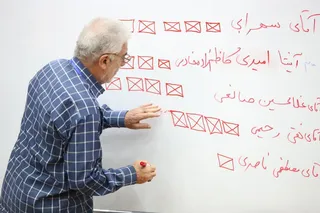 آقای سهرابی
آیتا امیری کاظم
آقای غلامحسین صالحی
آقای تقی رحیمی
آقای مصطفی ناصری